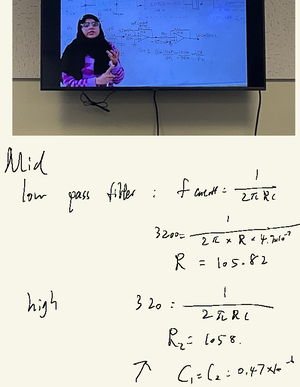 Mid
low pass filter : f cutoff = 1 / 2πRC
3200 = 1 / 2π × R × 4.7×10⁻⁷
R = 105.82
high 320 = 1 / 2πRC
R₂ = 1058.
↗ C₁ = C₂ = 0.47×10⁻⁶